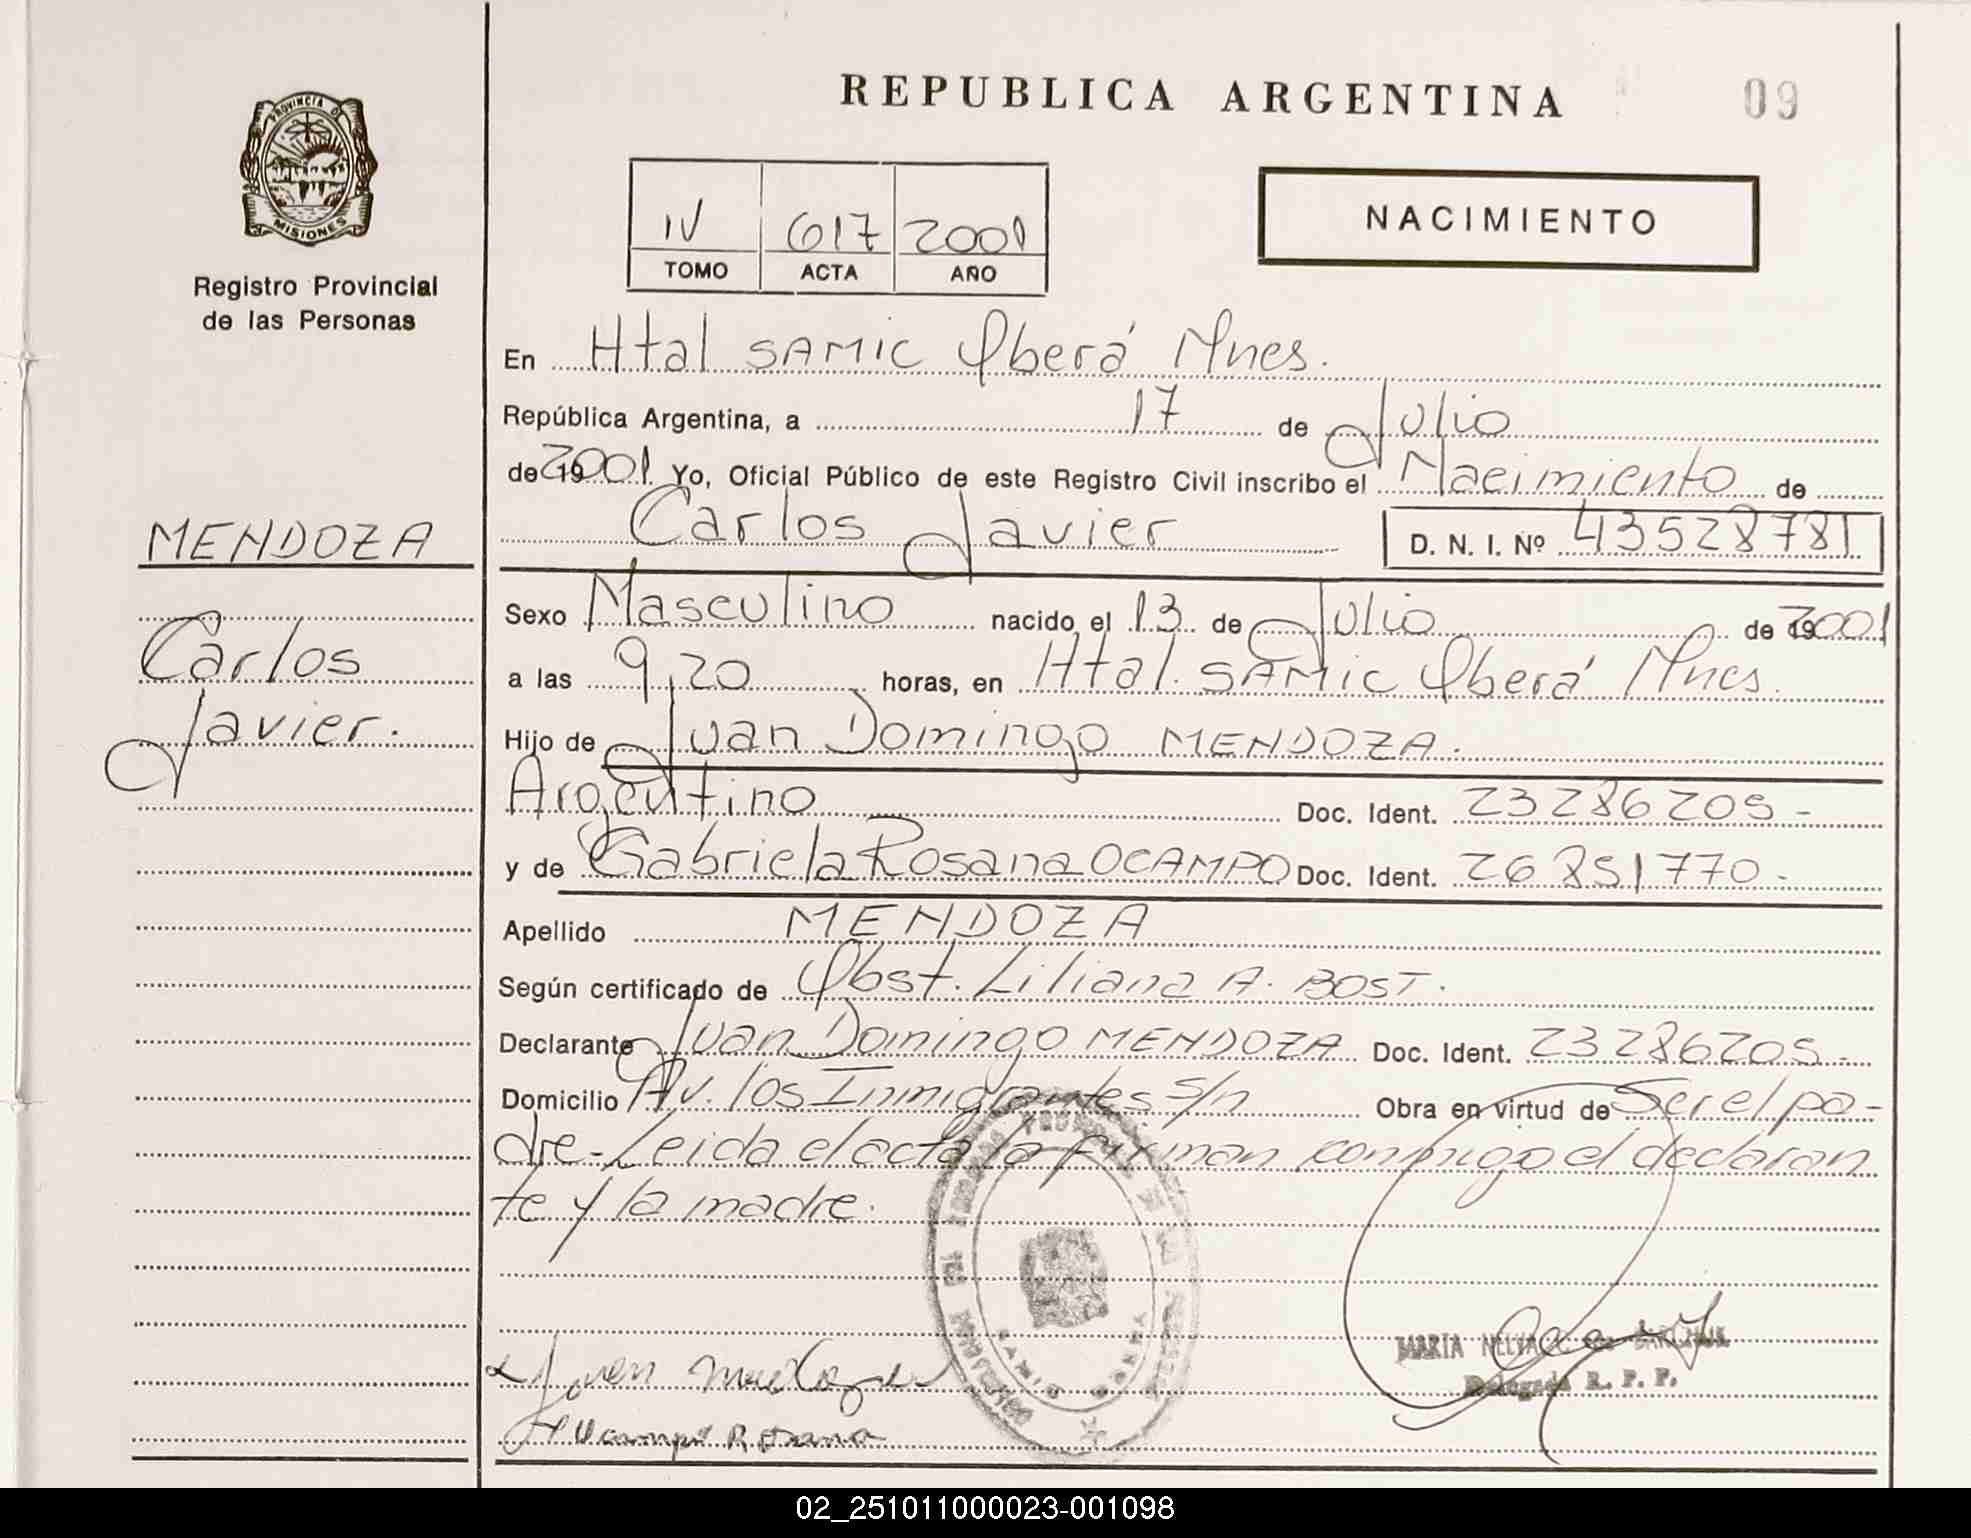 REPUBLICA ARGENTINA
09
PROVINCIA D
MISIONES
Registro Provincial
de las Personas
IV 617 2001
TOMO ACTA AÑO
NACIMIENTO
En Htal SAMIC Oberá Mnes.
República Argentina, a 17 de Julio
de 19 2001 Yo, Oficial Público de este Registro Civil inscribo el Nacimiento de
Carlos Javier D. N. I. Nº 43528781
MENDOZA
Carlos
Javier.
Sexo Masculino nacido el 13 de Julio de 19 2001
a las 9,20 horas, en Htal. SAMIC Oberá Mnes.
Hijo de Juan Domingo MENDOZA.
Argentino Doc. Ident. 23286205-
y de Gabriela Rosana OCAMPO Doc. Ident. 26851770-
Apellido MENDOZA
Según certificado de Obst. Liliana A. BOST.
Declarante Juan Domingo MENDOZA Doc. Ident. 23286205-
Domicilio Av. los Inmigrantes s/n Obra en virtud de Ser el pa-
dre-Leida el acta la firman conmigo el declaran
te y la madre.
MARIA NELVA
Delegada R. P. P.
Ocampo Rosana
02_251011000023-001098